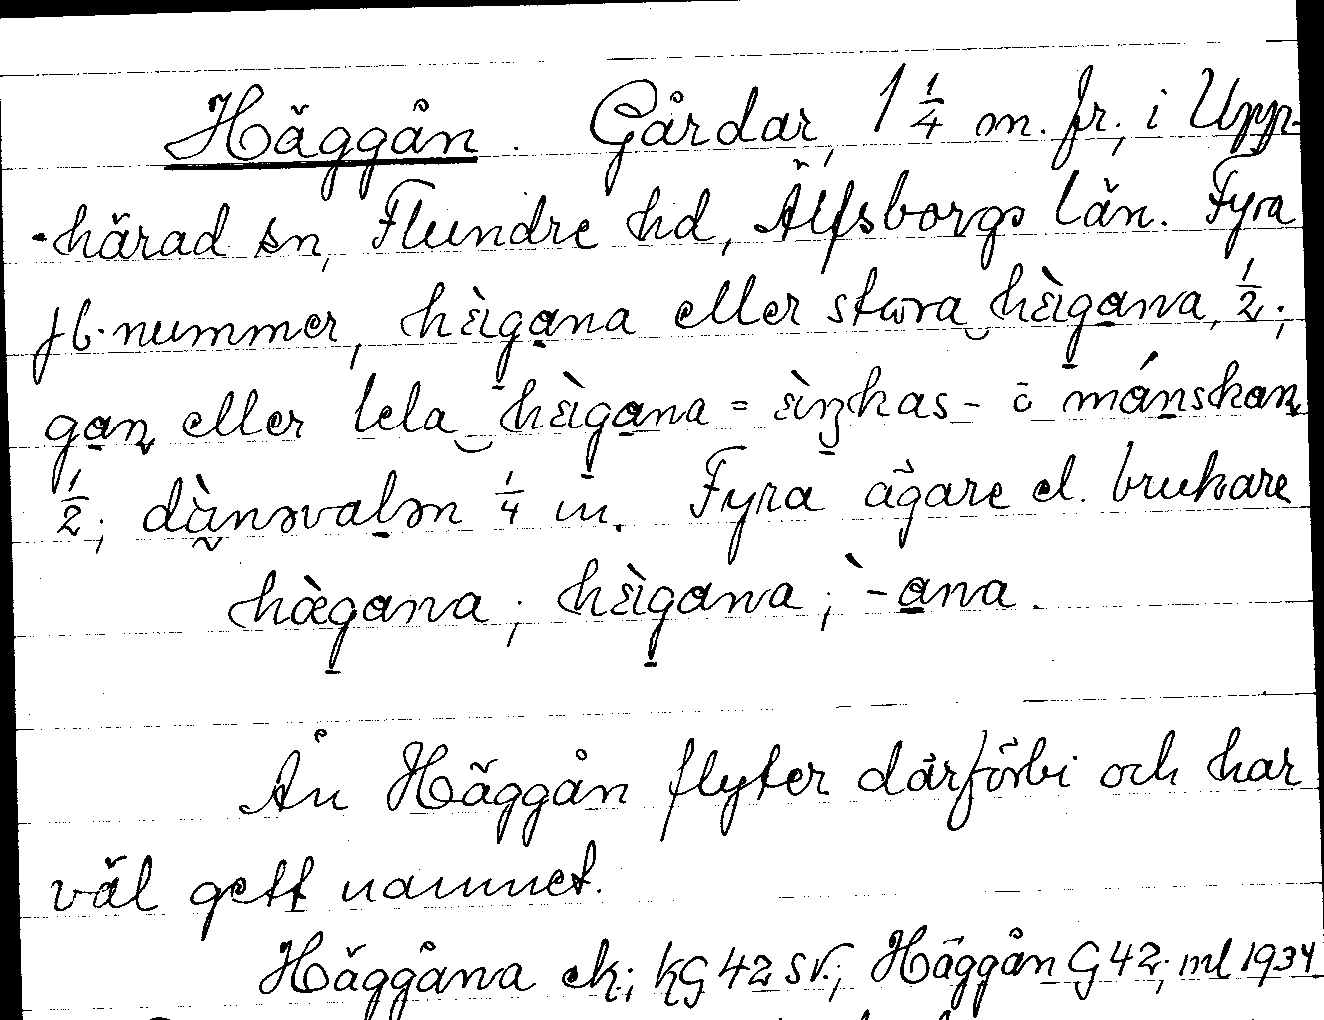 Häggån. Gårdar, 1 1/4 m. fr., i Upp-
-härad sn, Flundre hd, Älfsborgs län. Fyra
jb.nummer, hɛ̀gana eller stora hɛ̀gana, 1/2;
eller lela hɛ̀gana =
1/2; 1/4 m. Fyra ägare el. brukare
hæ̀gana; hɛ̀gana; -ana.
Ån Häggån flyter därförbi och har
väl gett namnet.
Häggåna ek; kG 42 SV.; Häggån G 42; ml 1934